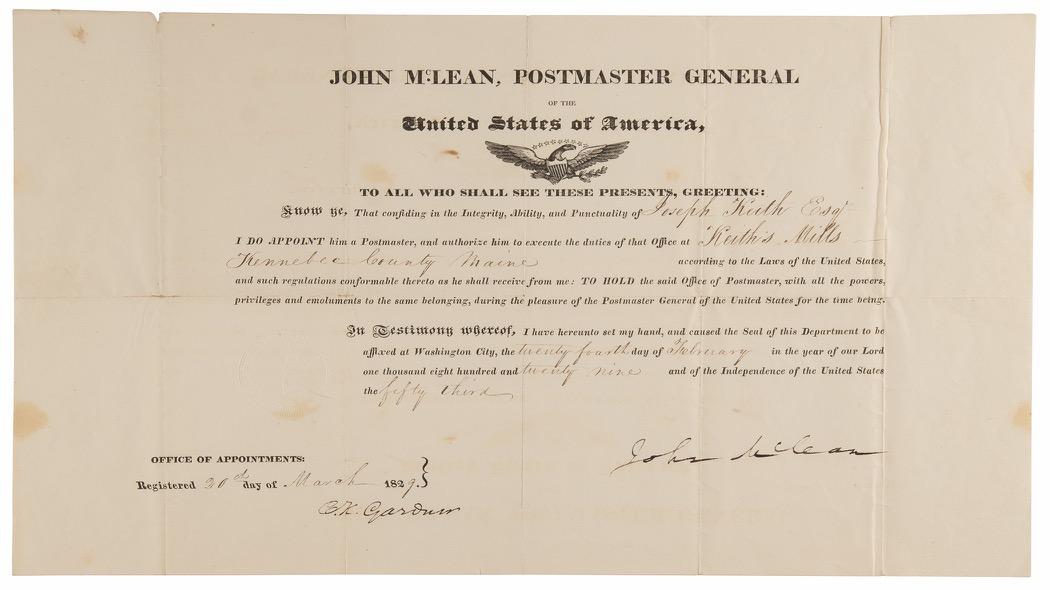 JOHN McLEAN, POSTMASTER GENERAL
OF THE
United States of America,
TO ALL WHO SHALL SEE THESE PRESENTS, GREETING:
Know ye, That confiding in the Integrity, Ability, and Punctuality of Joseph Keith Esqr
I DO APPOINT him a Postmaster, and authorize him to execute the duties of that Office at Keith's Mills
Kennebec County Maine according to the Laws of the United States,
and such regulations conformable thereto as he shall receive from me: TO HOLD the said Office of Postmaster, with all the powers,
privileges and emoluments to the same belonging, during the pleasure of the Postmaster General of the United States for the time being.
In Testimony whereof, I have hereunto set my hand, and caused the Seal of this Department to be
affixed at Washington City, the twenty fourth day of February in the year of our Lord
one thousand eight hundred and twenty nine and of the Independence of the United States
the fifty third
John McLean
OFFICE OF APPOINTMENTS:
Registered 20th day of March 1829.}
C.K. Gardner